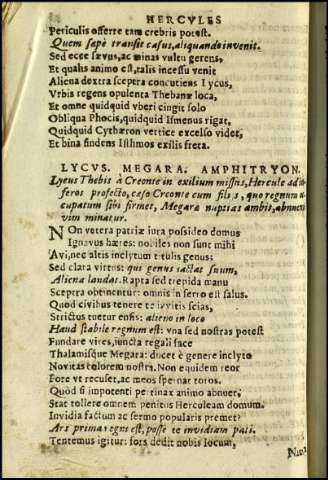 HERCVLES
Periculis offerre tam crebris potest.
Quem sæpè transit casus, aliquando invenit.
Sed ecce sævus, ac minas vultu gerens,
Et qualis animo est, talis incessu venit
Aliena dextra sceptra concutiens Lycus,
Vrbis regens opulenta Thebanæ loca,
Et omne quidquid vberi cingit solo
Obliqua Phocis, quidquid Ismenus rigat,
Quidquid Cythæron vertice excelso videt,
Et bina findens Isthmos exilis freta.
LYCVS. MEGARA. AMPHITRYON.
Lycus Thebis à Creonte in exilium missus, Hercule ad in
feros profecto, cæso Creonte cum filiis, quo regnum oc
cupatum sibi firmet, Megaræ nuptias ambit, abnuenti
vim minatur.
NOn vetera patriæ iura possideo domus
Ignavus hæres: nobiles non sunt mihi
Avi, nec altis inclytum titulis genus:
Sed clara virtus: qui genus iactat suum,
Aliena laudat. Rapta sed trepida manu
Sceptra obtinentur: omnis in ferro est salus.
Quod civibus tenere te invitis scias,
Strictus tuetur ensis: alieno in loco
Haud stabile regnum est: vna sed nostras potest
Fundare vires, iuncta regali face
Thalamisque Megara: ducet è genere inclyto
Novitas colorem nostra. Non equidem reor
Fore vt recuset, ac meos spernat toros.
Quòd si impotenti pertinax animo abnuet,
Stat tollere omnem penitus Herculeam domum.
Invidia factum ac sermo popularis premet?
Ars prima regni est, posse te invidiam pati.
Tentemus igitur: fors dedit nobis locum,